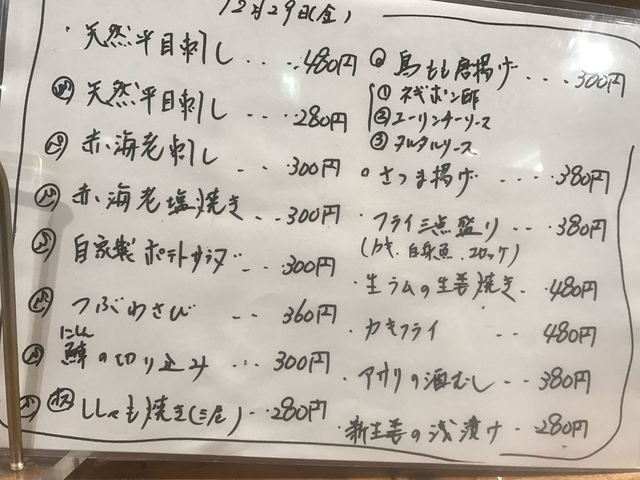 12月29日(金)
・天然平目刺し ... 480円
天然平目刺し ... 280円
赤海老刺し ... 300円
赤海老塩焼き ... 300円
自家製ポテトサラダ ... 300円
つぶわさび ... 360円
にしん
鰊の切り込み ... 300円
ししゃも焼き(三尾) ... 280円
鳥もも唐揚げ ... 300円
① ネギポン酢
② ユーリンチーソース
③ タルタルソース
さつま揚げ .... 380円
フライ三点盛り ... 380円
(カキ、白身魚、コロッケ)
生ラムの生姜焼き . 480円
カキフライ -- 480円
・アサリの酒むし -- 380円
・新生姜の浅漬け -- 280円